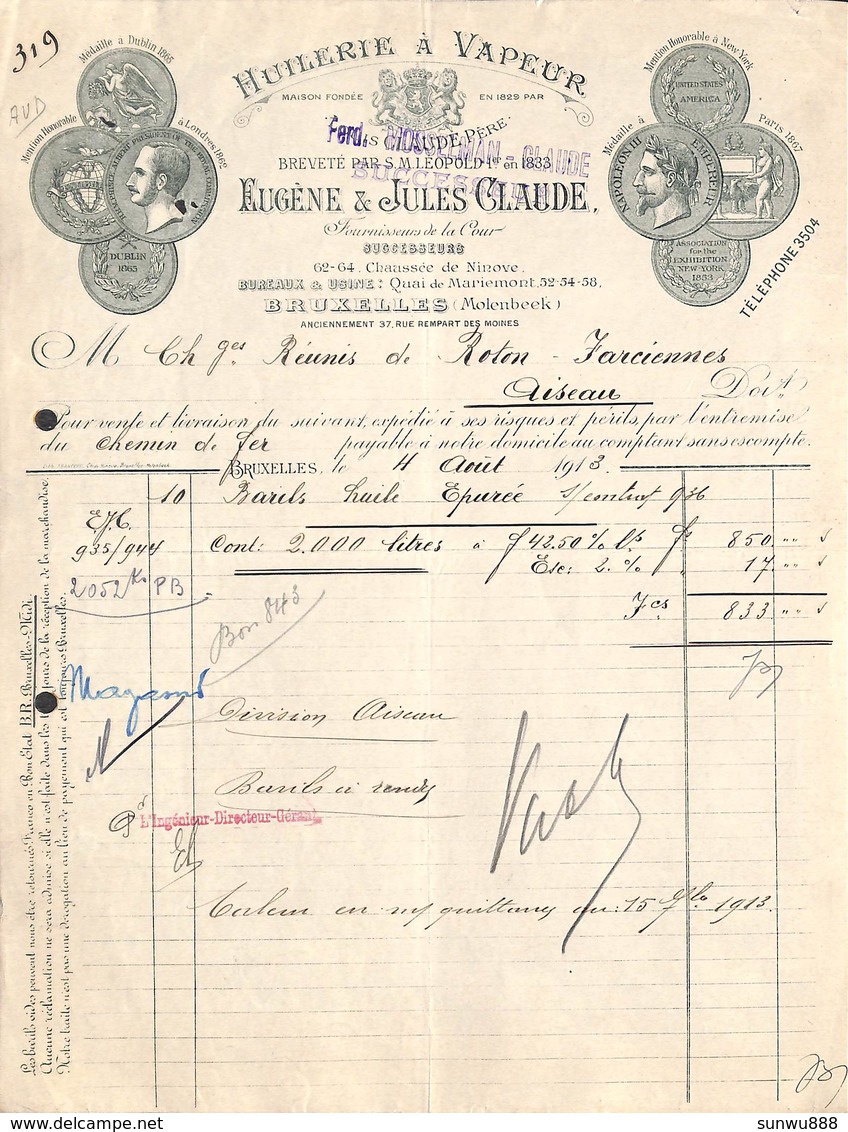 319
AUD
Médaille à Dublin 1865
Mention Honorable à Londres 1862
DUBLIN
1865
HUILERIE À VAPEUR
MAISON FONDÉE EN 1829 PAR
CLAUDE PÈRE
Ferd. MOSSELMAN - CLAUDE
SUCCESSEUR
BREVETÉ PAR S.M. LÉOPOLD 1er en 1833
EUGÈNE & JULES CLAUDE,
Fournisseurs de la Cour
SUCCESSEURS
62-64, Chaussée de Ninove.
BUREAUX & USINE: Quai de Mariemont, 52-54-58,
BRUXELLES (Molenbeek)
ANCIENNEMENT 37, RUE REMPART DES MOINES
Mention Honorable à New-York
UNITED STATES
AMERICA
Médaille à Paris 1867
NAPOLEON III EMPEREUR
ASSOCIATION
for the
EXHIBITION
NEW-YORK
1853
TÉLÉPHONE 3504
M Ch ges Réunis de Roton - Farciennes
Aiseau Doit
Pour vente et livraison du suivant, expédié à ses risques et périls, par l'entremise
du chemin de fer payable à notre domicile au comptant sans escompte.
BRUXELLES, le 4 Août 1913
10 Barils huile Epurée s/contrat 936
E/C.
935/944 Cont: 2.000 litres à f 42.50 % l/s fr 850 " "
Esc: 2. % " 17 " "
2052 Ko PB
Fcs 833 " "
Bon 843
Magasins
Division Aiseau
Barils à rendre
L'Ingénieur-Directeur-Gérant
Valeur en m/ quittance au: 15 1913
Les barils vides peuvent nous être retournés Franco en Bon Etat B.R. Bruxelles-Midi.
Aucune réclamation ne sera admise si elle n'est faite dans les jours de la réception de la marchandise.
Notre traite n'est pas une dérogation au lieu de payement qui est toujours Bruxelles.
sunwu888